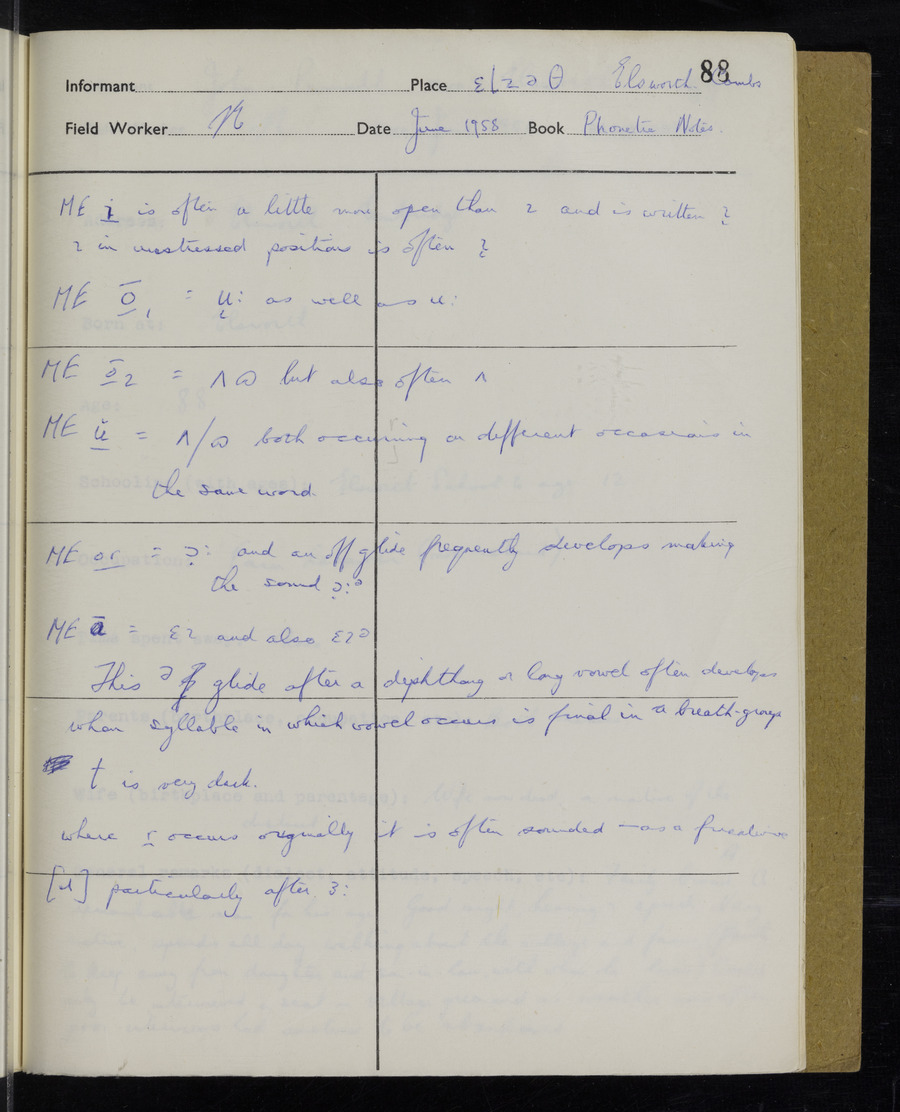 88
Informant Place ɛlzəθ Elsworth Cambs
Field Worker Date June 1958 Book Phonetic Notes.
ME i is often a little more open than ɪ and is written ɪ̞
ɪ in unstressed positions is often ɪ̞
ME ō₁ = u̞: as well as u:
ME ō₂ = ʌɷ but also often ʌ
ME ŭ = ʌ/ɷ both occurring on different occasions in
the same word.
ME or = ɔ̞: and an off glide frequently develops making
the sound ɔ̞:ə
ME ā = ɛɪ and also ɛɪə
This ə glide after a diphthong or long vowel often develops
when syllable in which vowel occurs is final in a breath-group
ɫ is very dark.
where r occurs originally it is often sounded – as a fricative
[ɹ] particularly after ɜ: